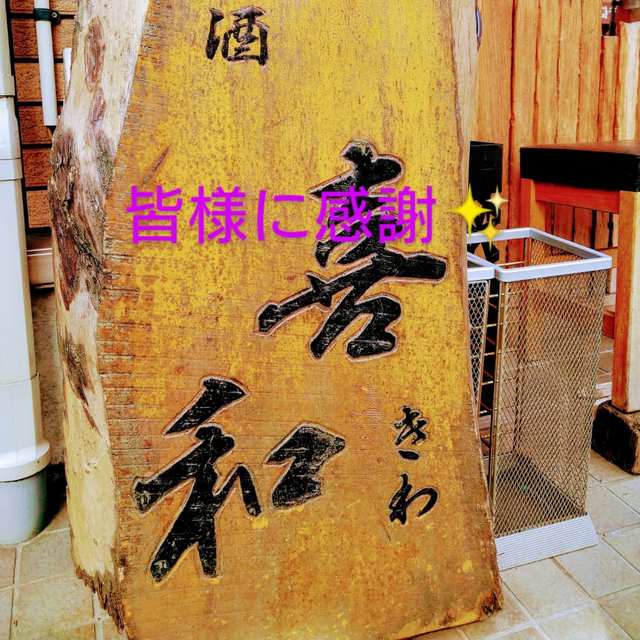 酒
皆様に感謝✨
喜
和
きわ